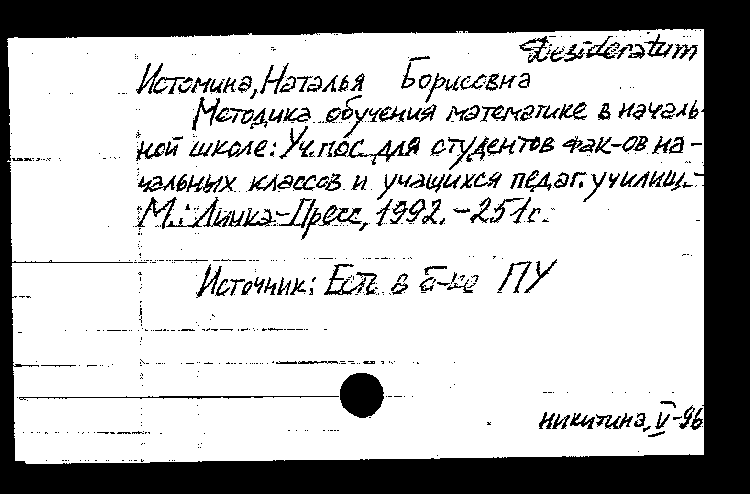 Desideratum
Истомина, Наталья Борисовна
Методика обучения математике в началь-
ной школе: Уч. пос. для студентов фак-ов на-
чальных классов и учащихся педаг. училищ.-
М.: Линка-Пресс, 1992. - 251 с.
Источник: Есть в б-ке ПУ
никитина, V-96